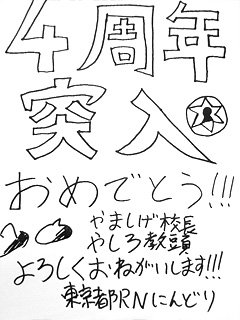 4周年
突入
おめでとう!!!
やましげ校長
やしろ教頭
よろしくおねがいします!!!
東京都RNにんどり